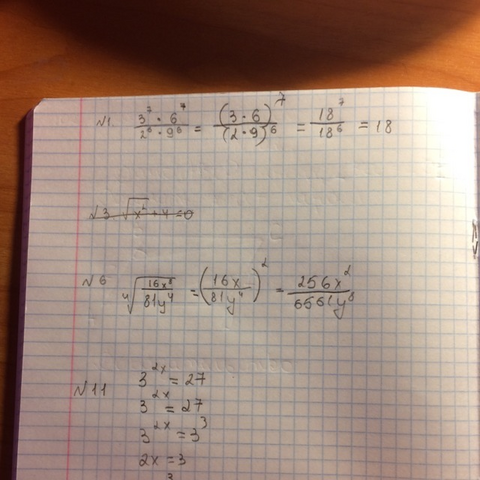 №1 (3^7 · 6^7)/(2^6 · 9^6) = (3·6)^7/(2·9)^6 = 18^7/18^6 = 18
√3 √x² + 4 = 0
№6 ⁴√(16x⁸/81y⁴) = (16x/81y⁴)² = 256x²/6561y⁸
№11 3^2x = 27
3^2x = 27
3^2x = 3^3
2x = 3
3